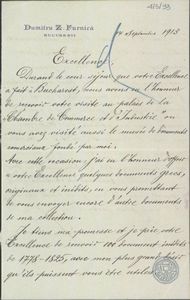 Dumitru Z. Furnică
BUCUREȘTI
4/5/33
14 Septembre 1915
Excellence,
Durant le court séjour que votre Excellence
a fait à Bucharest, nous avons eu l'honneur
de recevoir votre visite au palais de la
Chambre de Commerce et d'Industrie où
vous avez visité aussi le musée de documents
comerciaux fondé par moi.
Avec cette occasion j'ai eu l'honneur d'offrir
à votre Excellence quelques documents grecs,
originaux et inédits, en vous promettant
de vous envoyer encore d'autres documents
de ma collection.
Je tiens ma promesse et je prie votre
Excellence de recevoir 100 documents inédits
de 1778-1825, avec mon plus grand désir
qu'ils puissent vous être utiles